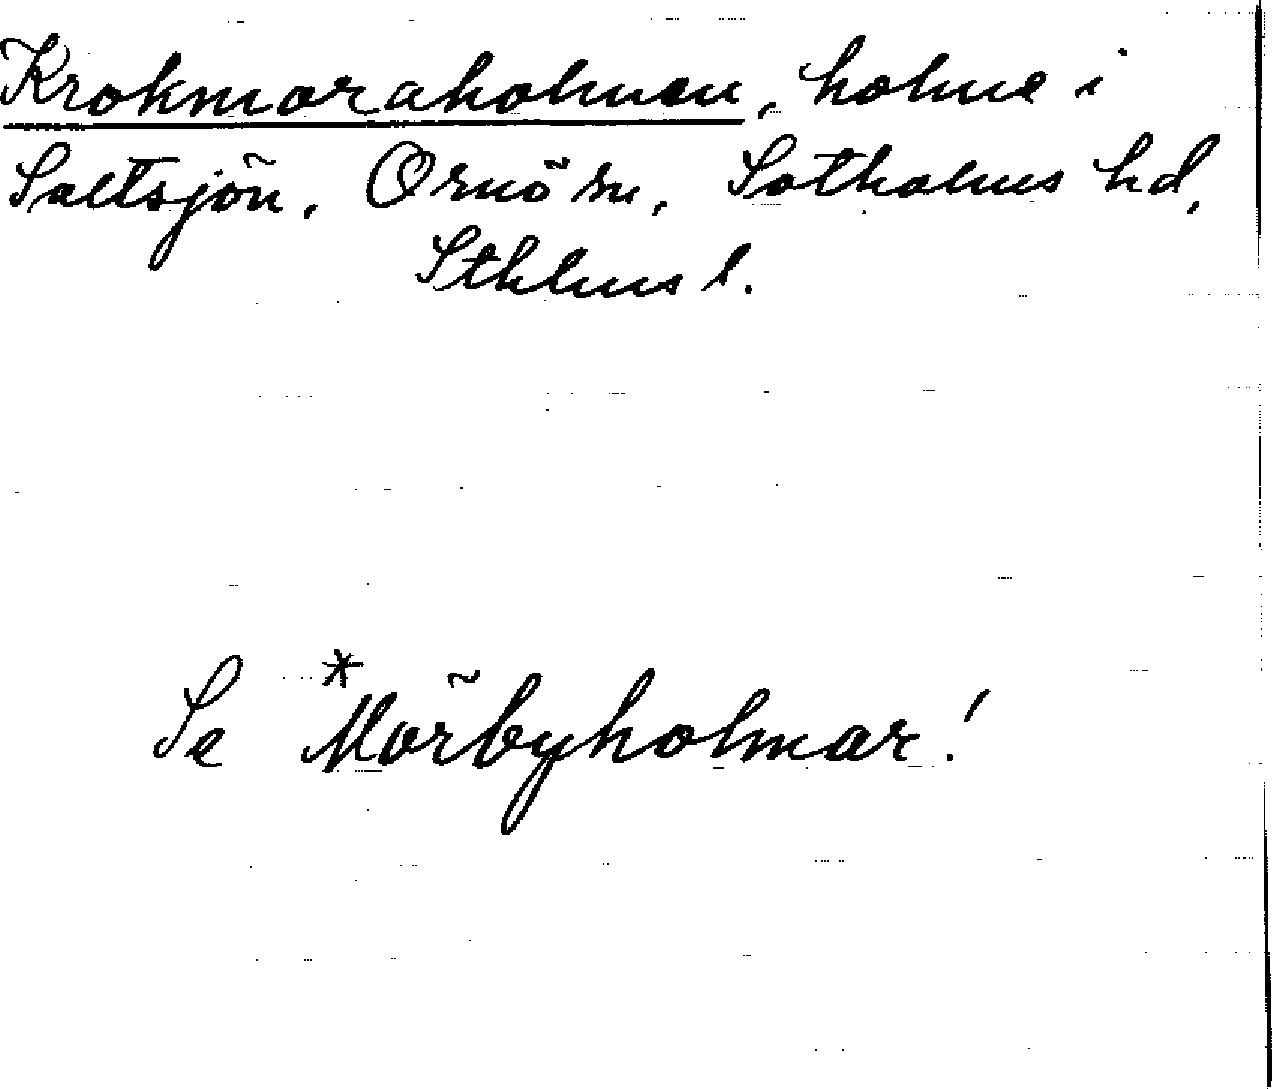 Krokmaraholmen, holme i
Saltsjön, Ornö sn, Sotholms hd,
Sthlms l.
Se *Mörbyholmar!